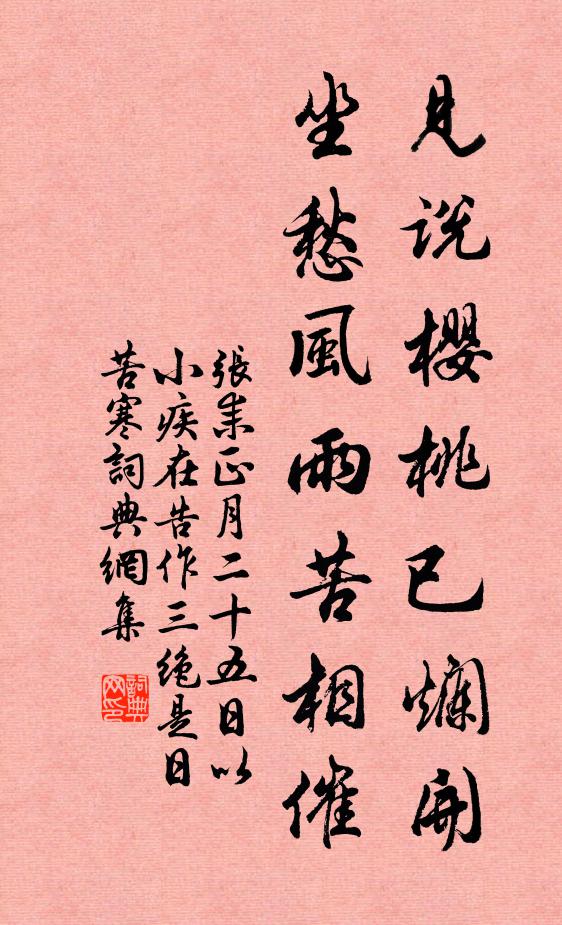 見説櫻桃已爛開
坐愁風雨苦相催
張耒正月二十五日以
小疾在告作三絶是日
苦寒詞典網集
詞典
网印